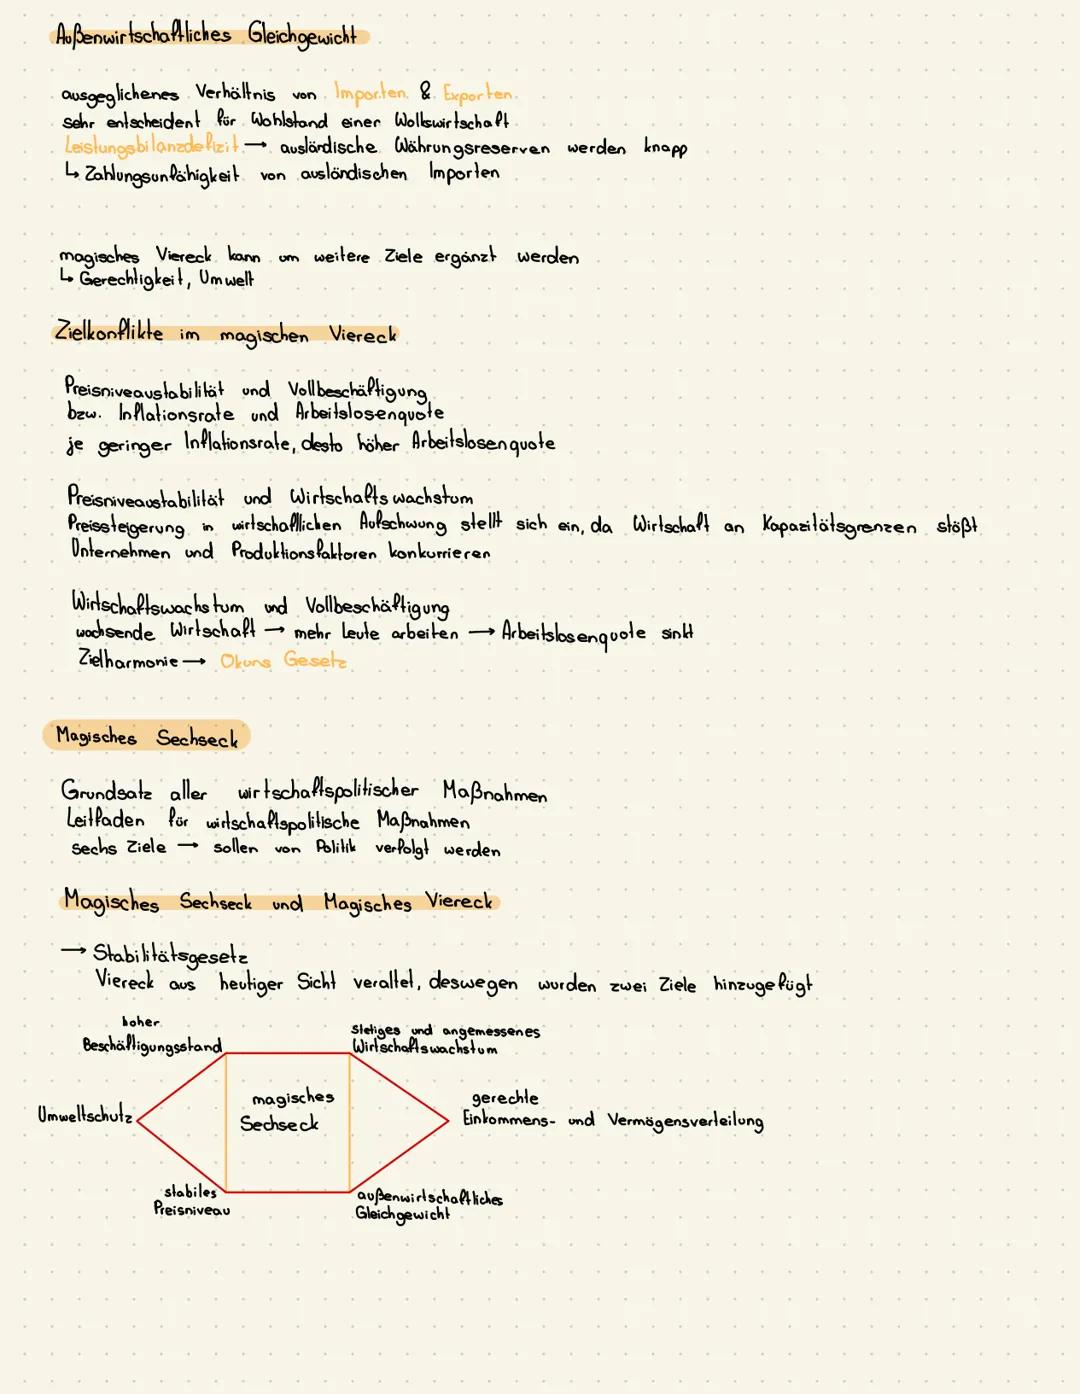 Außenwirtschaftliches Gleichgewicht
ausgeglichenes Verhältnis von Importen & Exporten
sehr entscheident für Wohlstand einer Wollswirtschaft
Leistungsbilanzdefizit → ausländische Währungsreserven werden knapp
↳ Zahlungsunfähigkeit von ausländischen Importen
magisches Viereck kann um weitere Ziele ergänzt werden
↳ Gerechtigkeit, Umwelt
Zielkonflikte im magischen Viereck
Preisniveaustabilität und Vollbeschäftigung
bzw. Inflationsrate und Arbeitslosenquote
je geringer Inflationsrate, desto höher Arbeitslosenquote
Preisniveaustabilität und Wirtschaftswachstum
Preissteigerung in wirtschaftlichen Aufschwung stellt sich ein, da Wirtschaft an Kapazitätsgrenzen stößt
Unternehmen und Produktionsfaktoren konkurrieren
Wirtschaftswachstum und Vollbeschäftigung
wachsende Wirtschaft → mehr Leute arbeiten → Arbeitslosenquote sinkt
Zielharmonie → Okuns Gesetz
Magisches Sechseck
Grundsatz aller wirtschaftspolitischer Maßnahmen
Leitfaden für wirtschaftspolitische Maßnahmen
sechs Ziele → sollen von Politik verfolgt werden
Magisches Sechseck und Magisches Viereck
→ Stabilitätsgesetz
Viereck aus heutiger Sicht veraltet, deswegen wurden zwei Ziele hinzugefügt
hoher
Beschäftigungsstand
stetiges und angemessenes
Wirtschaftswachstum
Umweltschutz
magisches
Sechseck
gerechte
Einkommens- und Vermögensverteilung
stabiles
Preisniveau
außenwirtschaftliches
Gleichgewicht